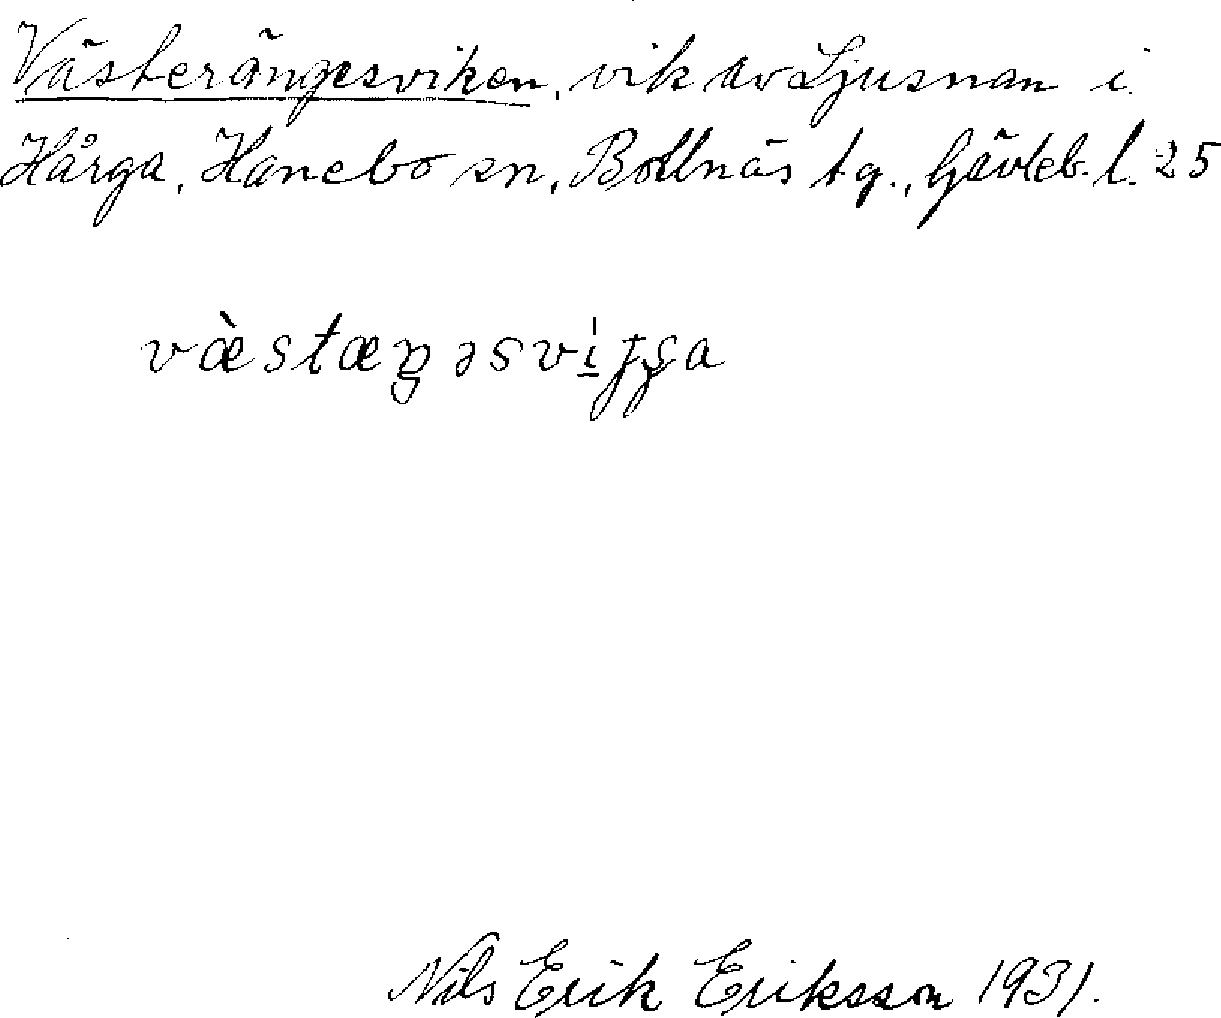 Västerängesviken, vik av Ljusnan i
Hårga, Hanebo sn, Bollnäs tg., Gävleb. l. 25
Nils Erik Eriksson 1931.